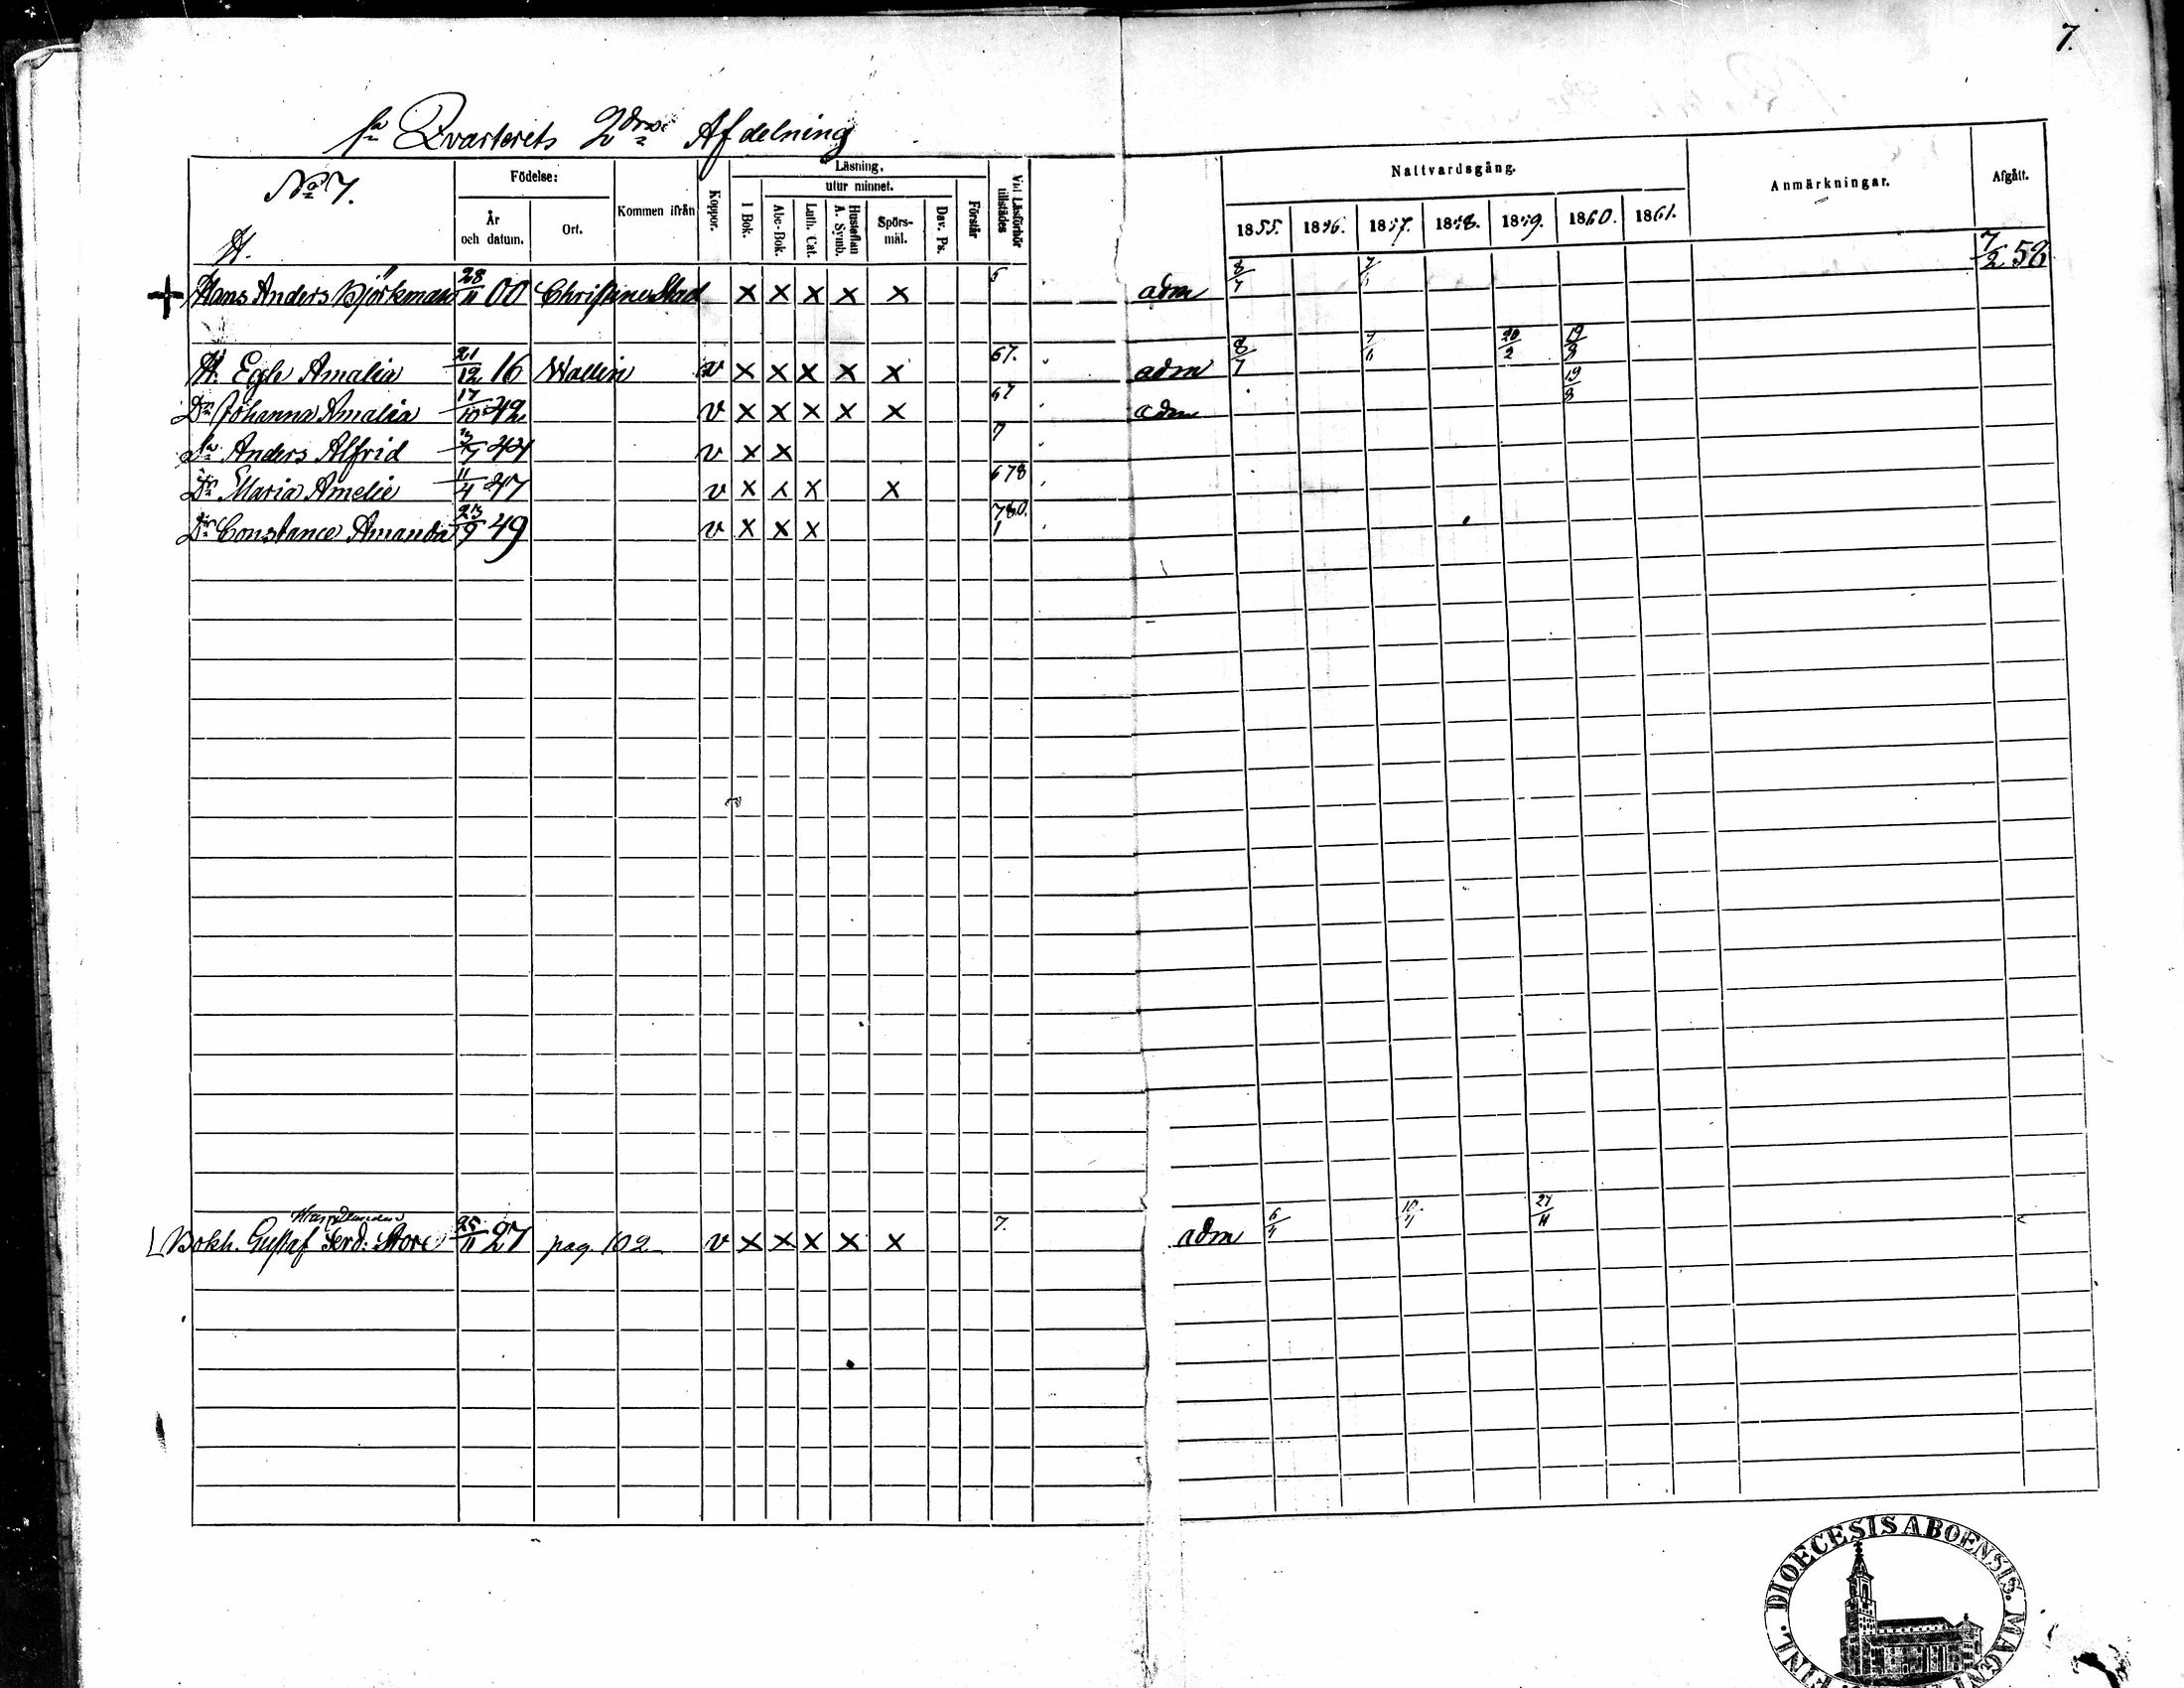 7.
1sta Qvarterets 2dra Afdelning
No 7.
Födelse:
År och datum.
Ort.
Kommen ifrån
Koppor.
Läsning,
utur minnet.
I Bok.
Abc-Bok.
Luth. Cat.
Hustaflan A. Symb.
Spörs-mål.
Dav. Ps.
Förstår
Vid Läsförhör tillstädes
Nattvardsgång.
1855. 1856. 1857. 1858. 1859. 1860. 1861.
Anmärkningar.
Afgått.
H.
+ Hans Anders Björkman 28/11 00 Christinestad x x x x x 5 adm 8/7 7/2 58
H. Egle Amalia 21/12 16 Wallin v x x x x x 67. adm 8/7 7/6 20/2 19/8
Dr Johanna Amalia 17/10 42 v x x x x x 67 adm 19/8
Sn Anders Alfrid 44 v x x 7
Dr Maria Amelie 11/4 47 v x x x x 678
Dr Constance Amanda 23/9 49 v x x x 780. 1
Bokh. Gustaf Ferd. Store 25/11 27 pag. 102 v x x x x x 7. adm 6/4 10/4 27/11
FINL. DIOECESIS ABOENSIS. MAGNI